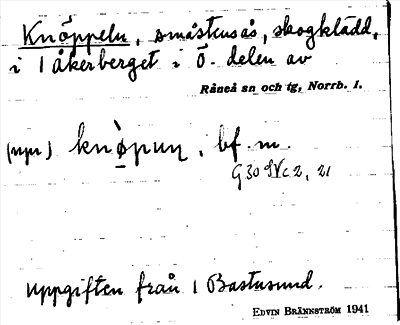 Knöppeln, småstenås, skogklädd,
i 1 åkerberget i Ö. delen av
Råneå sn och tg, Norrb. l.
(npr) knø̀puṇ, bf. m.
G 30 SV c 2, 21
Uppgiften från 1 Bastusund.
EDVIN BRÄNNSTRÖM 1941